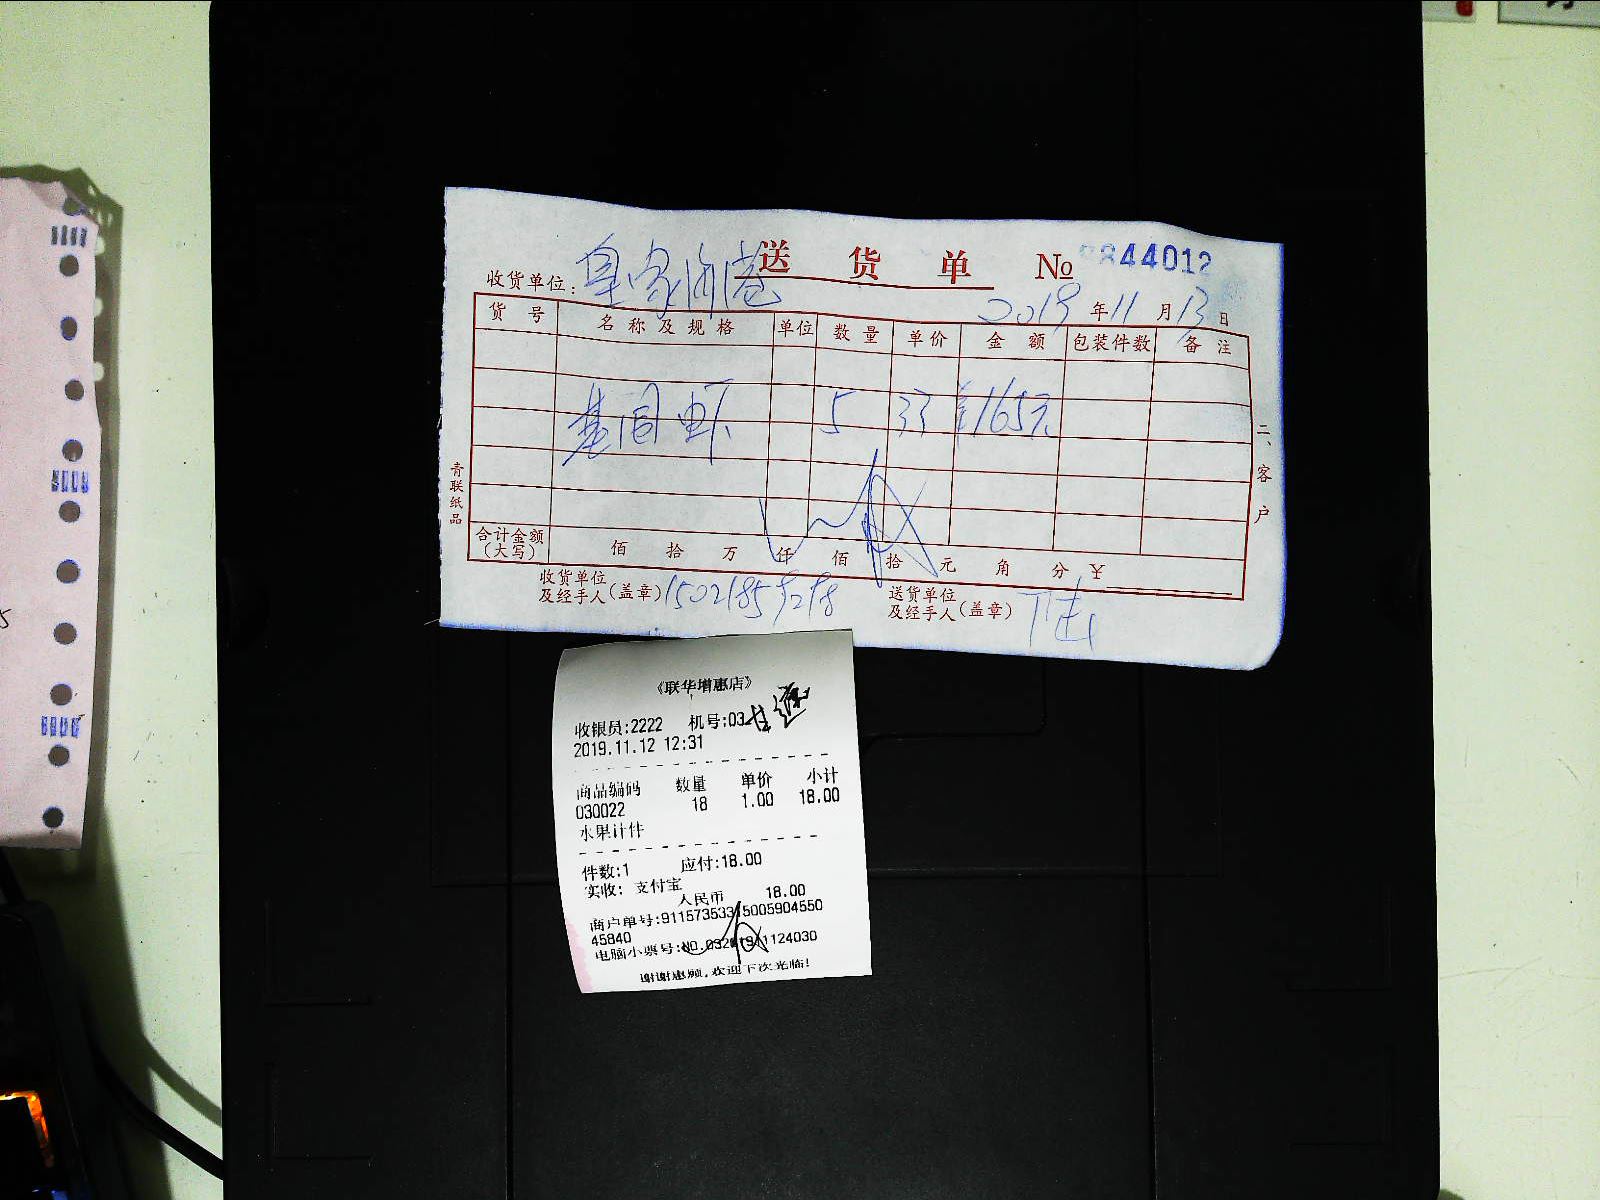 送 货 单 № 9844012
收货单位: 皇家
2019 年 11 月 13 日
货 号 名 称 及 规 格 单位 数 量 单价 金 额 包装件数 备 注
基围虾 5 33 ¥165元
合计金额(大写) 佰 拾 万 仟 佰 拾 元 角 分 ¥
收货单位及经手人(盖章) 送货单位及经手人(盖章)
青联纸品
二、客户
《联华增惠店》
收银员:2222 机号:03
2019.11.12 12:31
商品编码 数量 单价 小计
030022 18 1.00 18.00
水果计件
件数:1 应付:18.00
实收: 支付宝
人民币 18.00
商户单号:91157353315005904550
45840
电脑小票号:NO.
谢谢惠顾,欢迎下次光临!